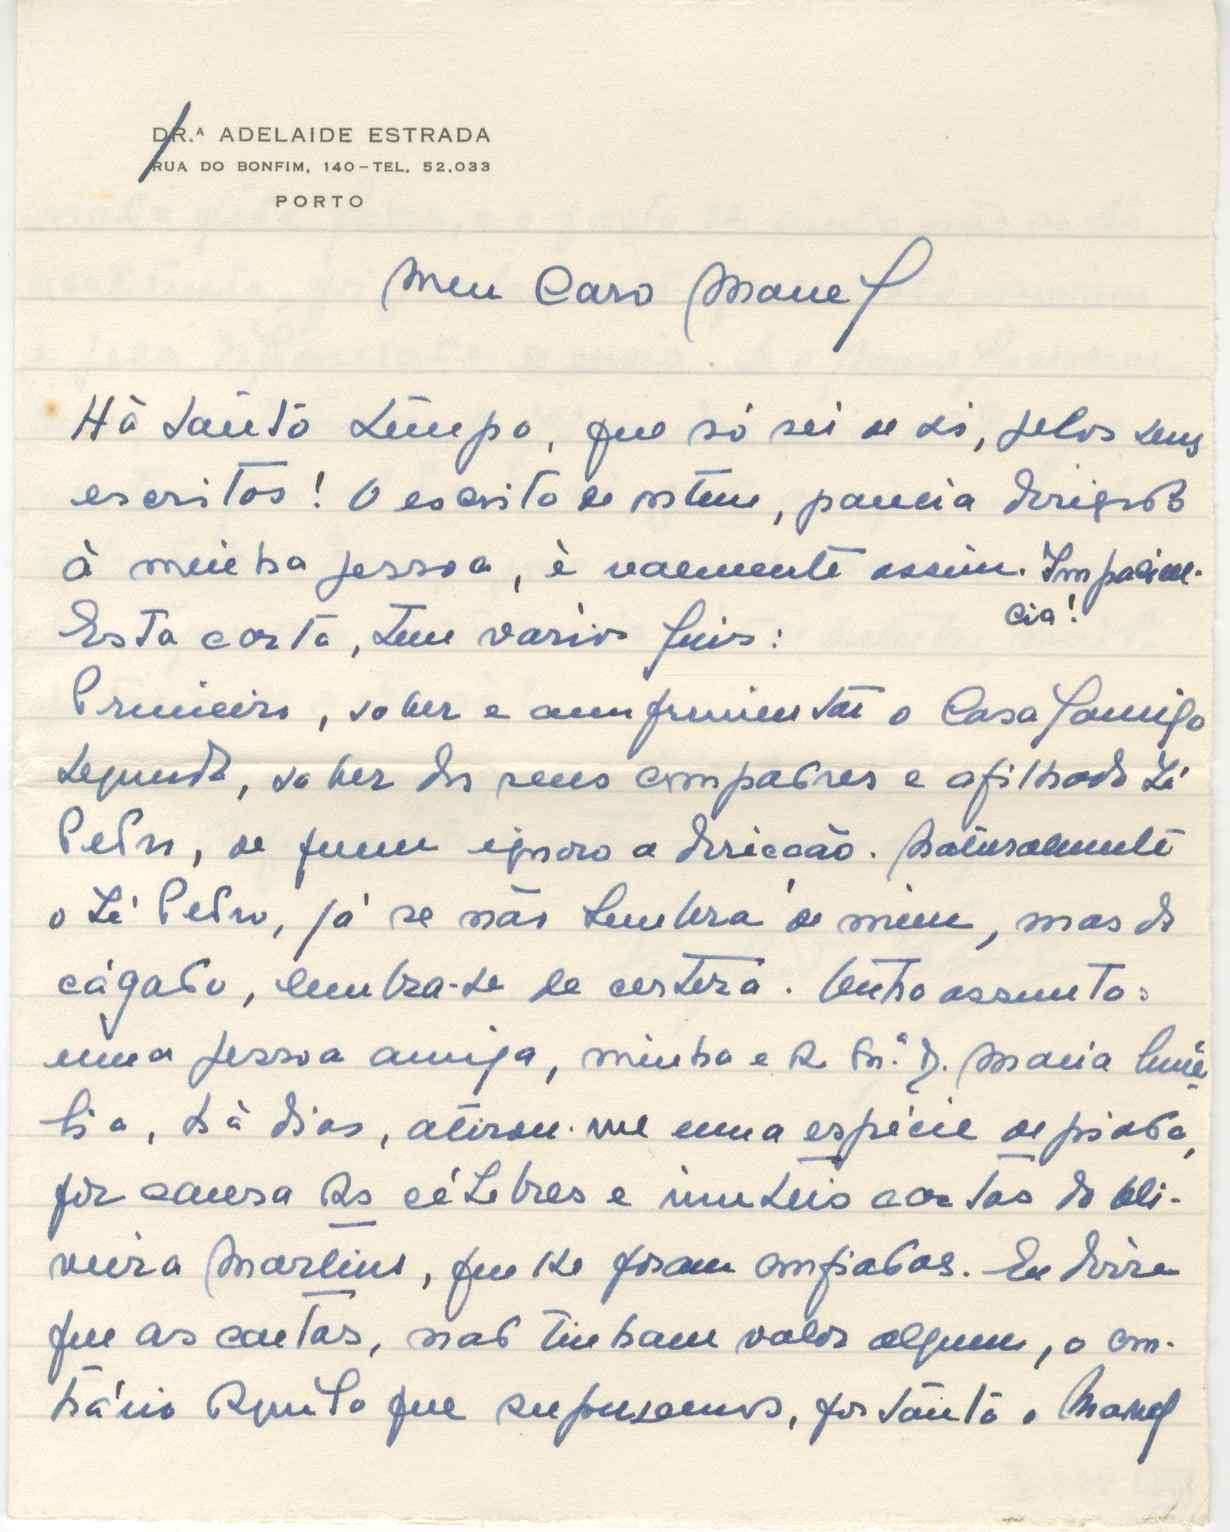 DR.ª ADELAIDE ESTRADA
RUA DO BONFIM, 140 - TEL. 52.033
PORTO
Meu Caro Manel
Há tanto tempo, que só sei de si, pelos seus
escritos! O escrito de ontem, parecia dirigido
à minha pessoa, è realmente assim. Impaciên-
cia!
Esta carta, tem varios fins:
Primeiro, saber e cumprimentar o Casal amigo
segundo, saber dos seus compadres e afilhado Zé
Pedro, de quem ignoro a direcção. Naturalmente
o Zé Pedro, já se não lembra de mim, mas do
cágado, lembra-se de certeza. Outro assunto:
uma pessoa amiga, minha e da Sr.ª D. Maria Emí-
lia, hà dias, atirou-me uma espécie de piada,
por causa das célebres e inuteis cartas do Oli-
veira Martins, que lhe foram confiadas. Eu disse
que as cartas, não tinham valor algum, o con-
trário daquilo que supunsemos, por tanto o Manel